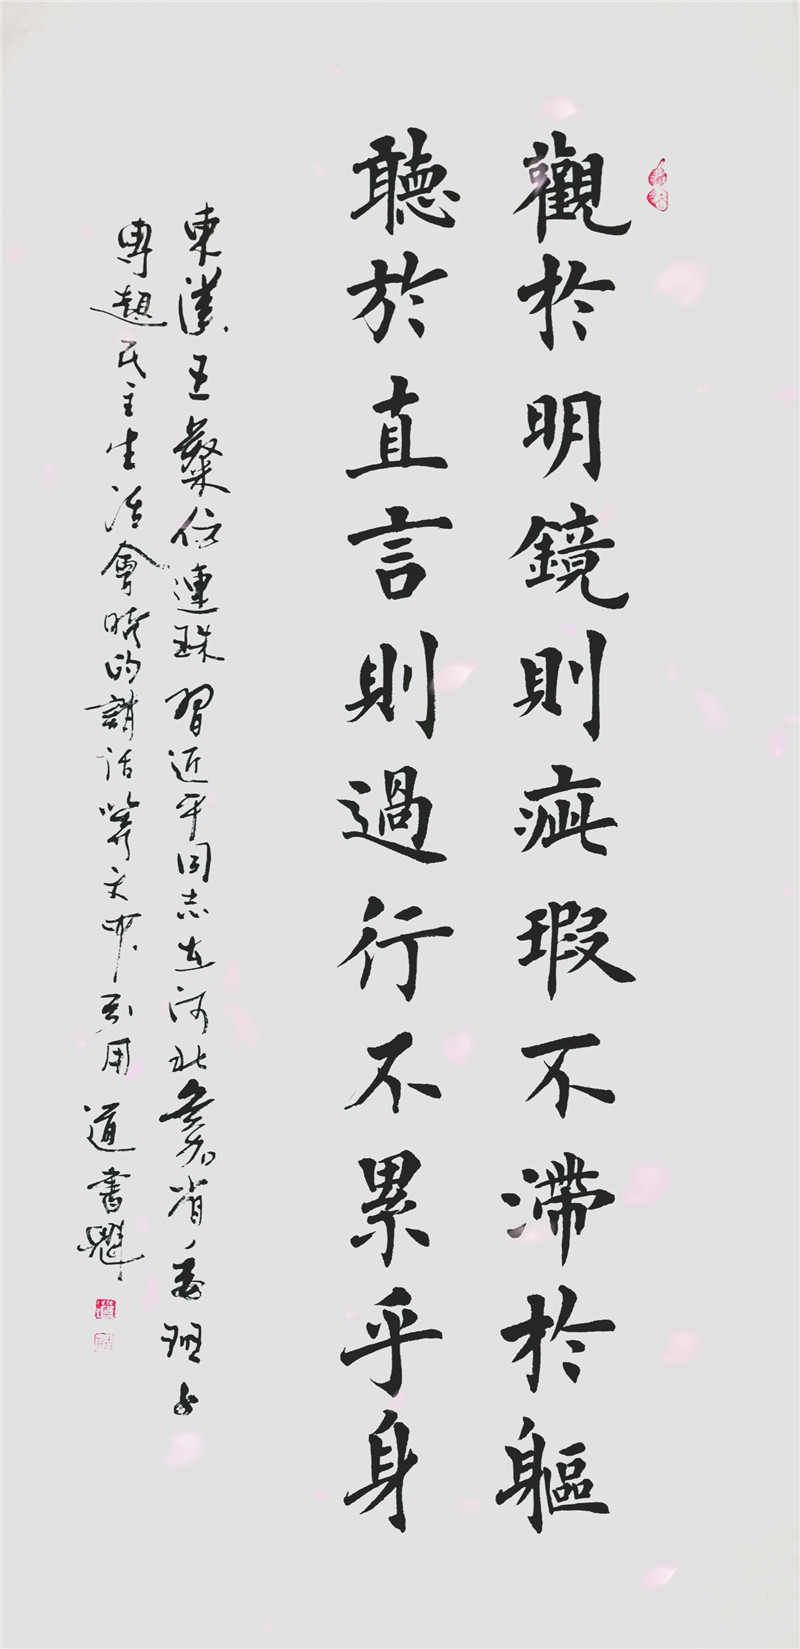 觀於明鏡則疵瑕不滯於軀
聽於直言則過行不累乎身
東漢王粲仿連珠習近平同志在河北參加省委班子
專題民主生活會時的講話等文中引用 道書